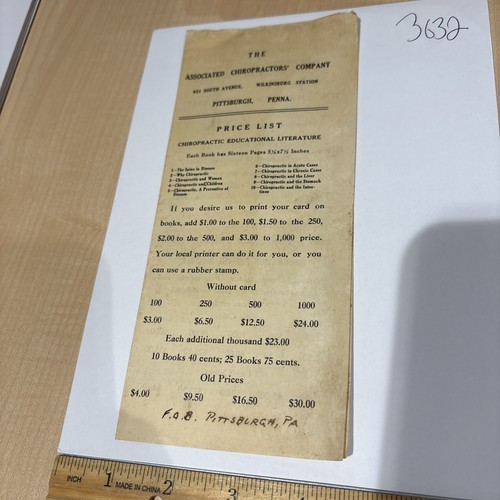 3632
THE
ASSOCIATED CHIROPRACTORS' COMPANY
SOUTH AVENUE, WILKINSBURG STATION
PITTSBURGH, PENNA.
PRICE LIST
CHIROPRACTIC EDUCATIONAL LITERATURE
Each Book has Sixteen Pages 5¼x7½ Inches
1—The Spine in Disease
2—Why Chiropractic
3—Chiropractic and Women
4—Chiropractic and Children
5—Chiropractic, A Preventive of
Disease
6—Chiropractic in Acute Cases
7—Chiropractic in Chronic Cases
8—Chiropractic and the Liver
9—Chiropractic and the Stomach
10—Chiropractic and the Intes-
tines
If you desire us to print your card on
books, add $1.00 to the 100, $1.50 to the 250,
$2.00 to the 500, and $3.00 to 1,000 price.
Your local printer can do it for you, or you
can use a rubber stamp.
Without card
100 250 500 1000
$3.00 $6.50 $12.50 $24.00
Each additional thousand $23.00
10 Books 40 cents; 25 Books 75 cents.
Old Prices
$4.00 $9.50 $16.50 $30.00
F.O.B. PITTSBURGH, PA
INCH 1 MADE IN CHINA 2 3 4